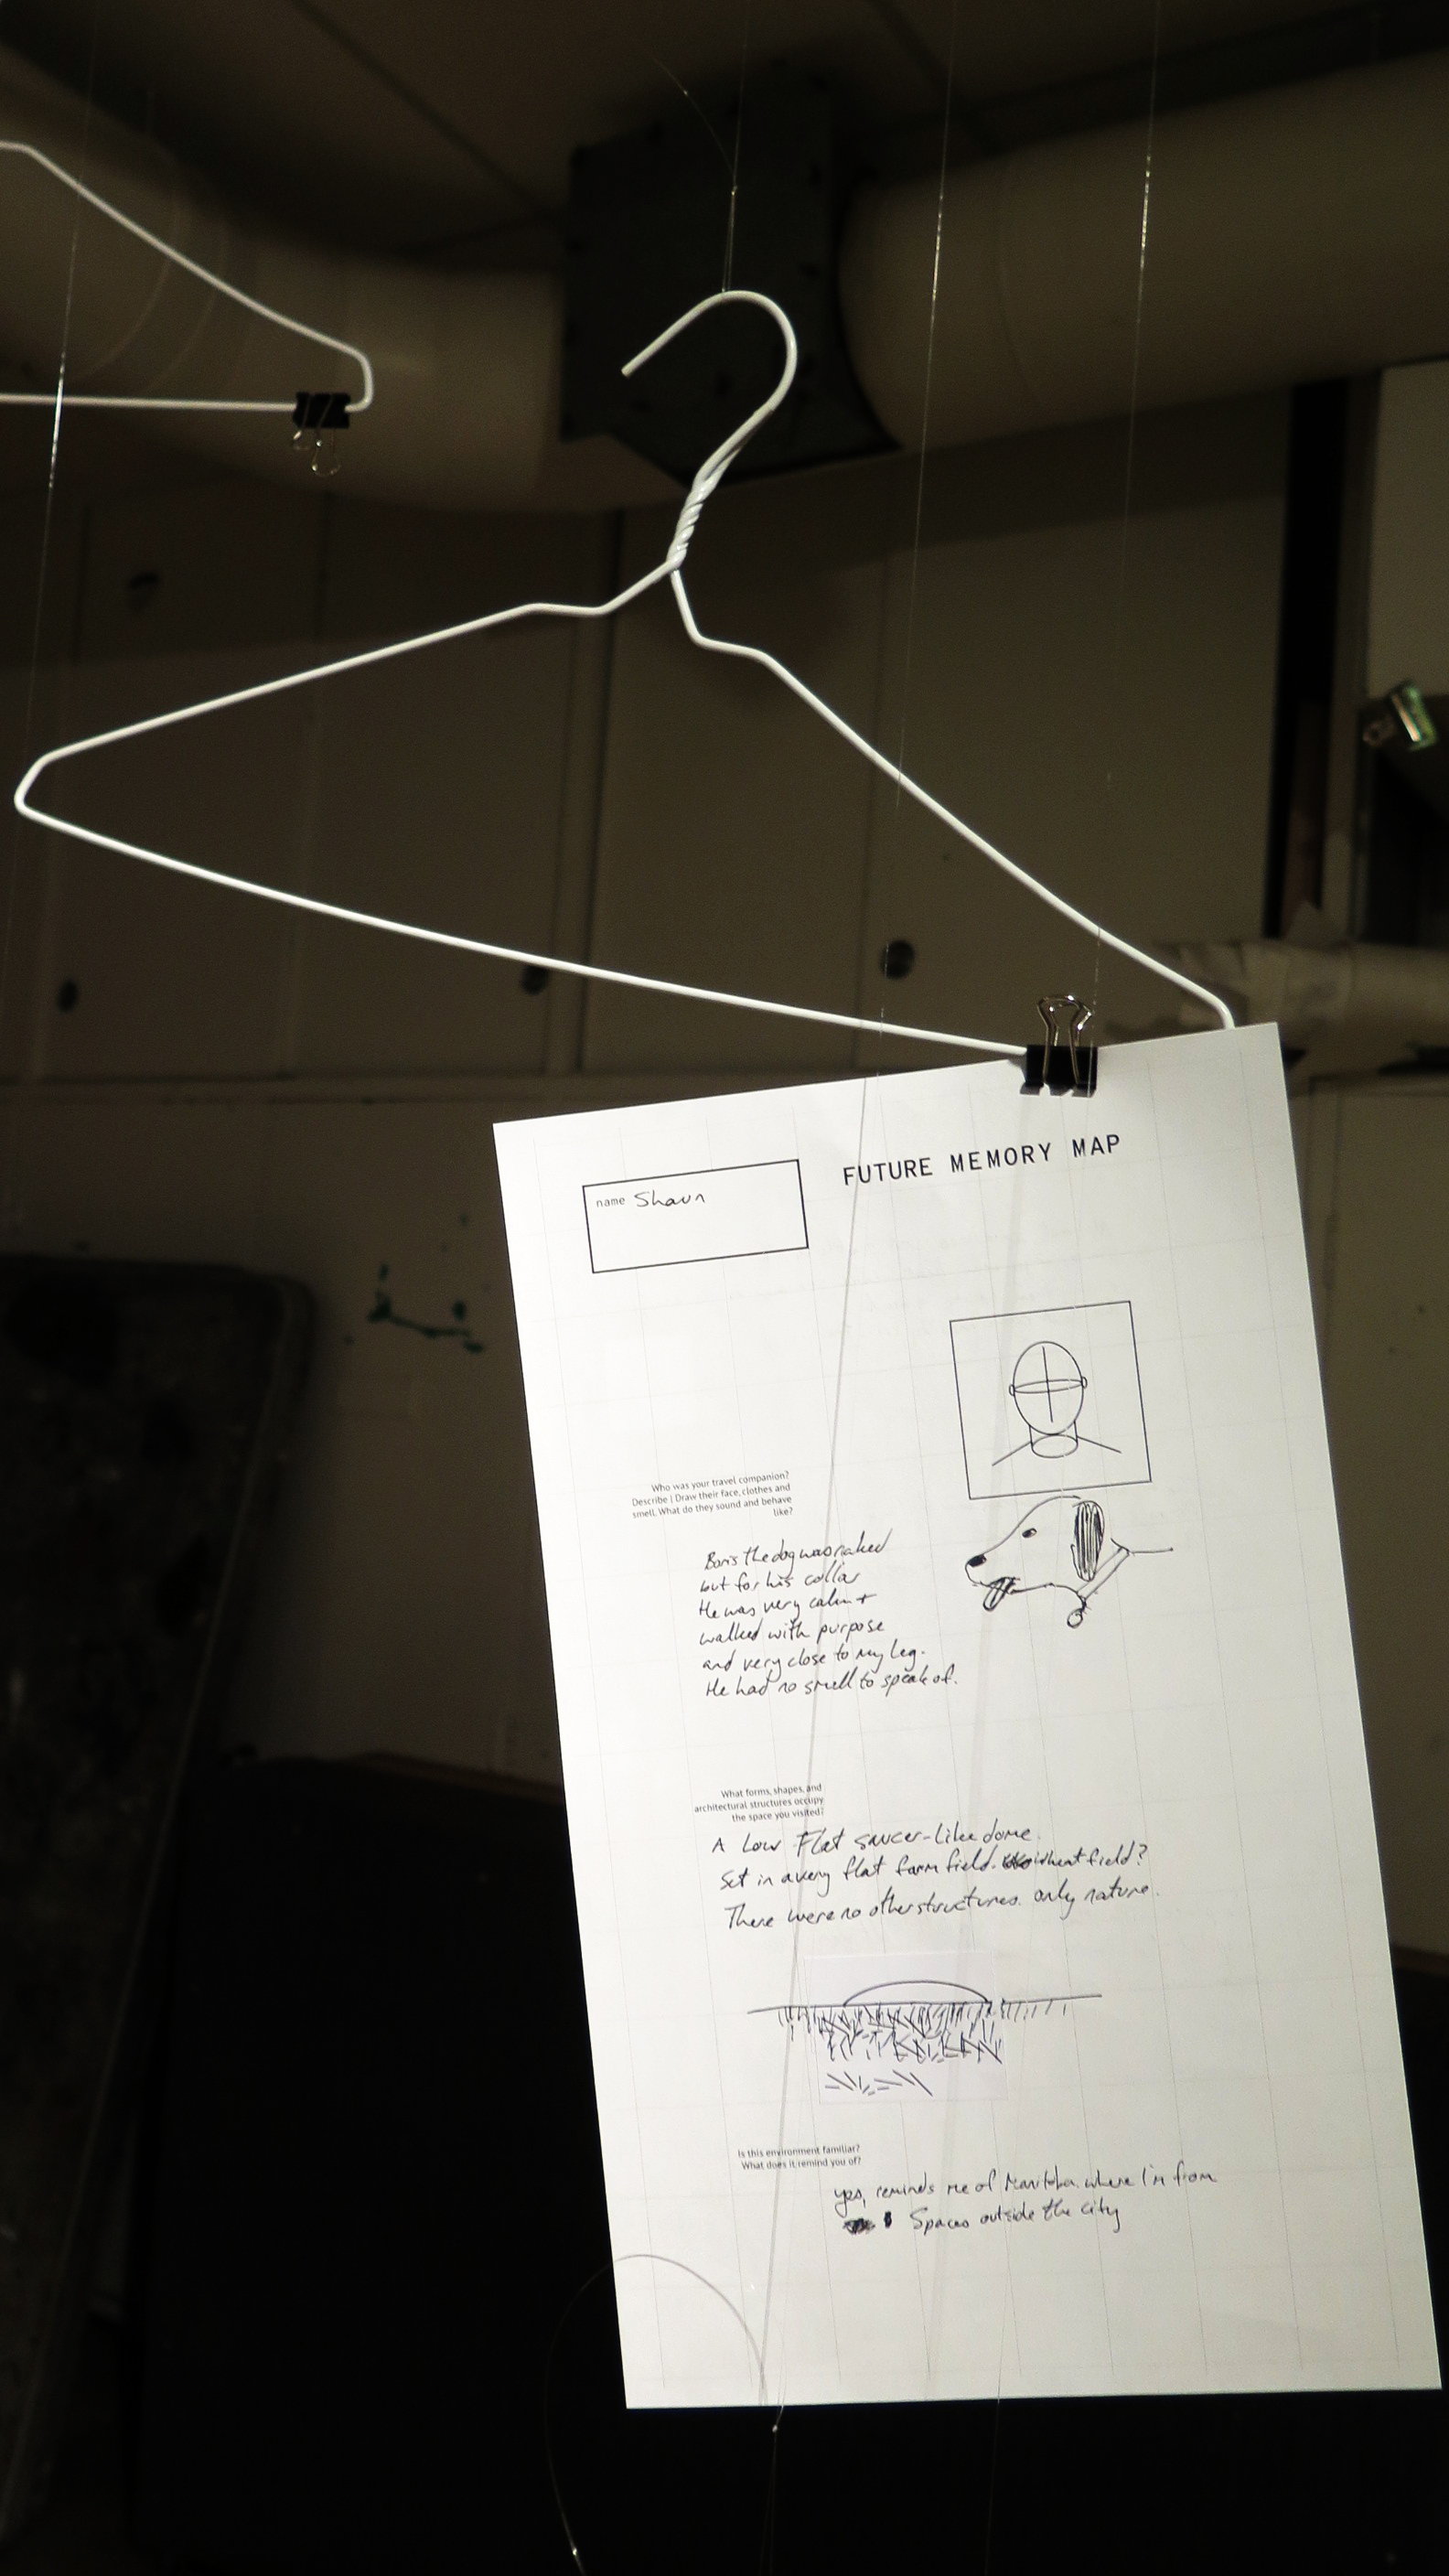 FUTURE MEMORY MAP
name Shaun
Who was your travel companion?
Describe | Draw their face, clothes and
smell. What do they sound and behave
like?
Boris the dog was naked
but for his collar
He was very calm +
walked with purpose
and very close to my leg.
He had no smell to speak of.
What forms, shapes, and
architectural structures occupy
the space you visited?
A Low Flat saucer-like dome.
Set in a very flat farm field. wheat field?
There were no other structures. only nature.
Is this environment familiar?
What does it remind you of?
yes, reminds me of Manitoba where I'm from
Spaces outside the city